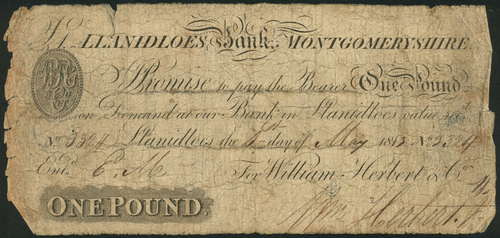 LLANIDLOES, Bank, MONTGOMERYSHIRE.
I Promise to pay the Bearer One Pound
on Demand at our Bank in Llanidloes value
No. 3324 Llanidloes the day of May 1812 No. 3324
Entd. E. M For William Herbert & Co.
Wm Herbert
ONE POUND.